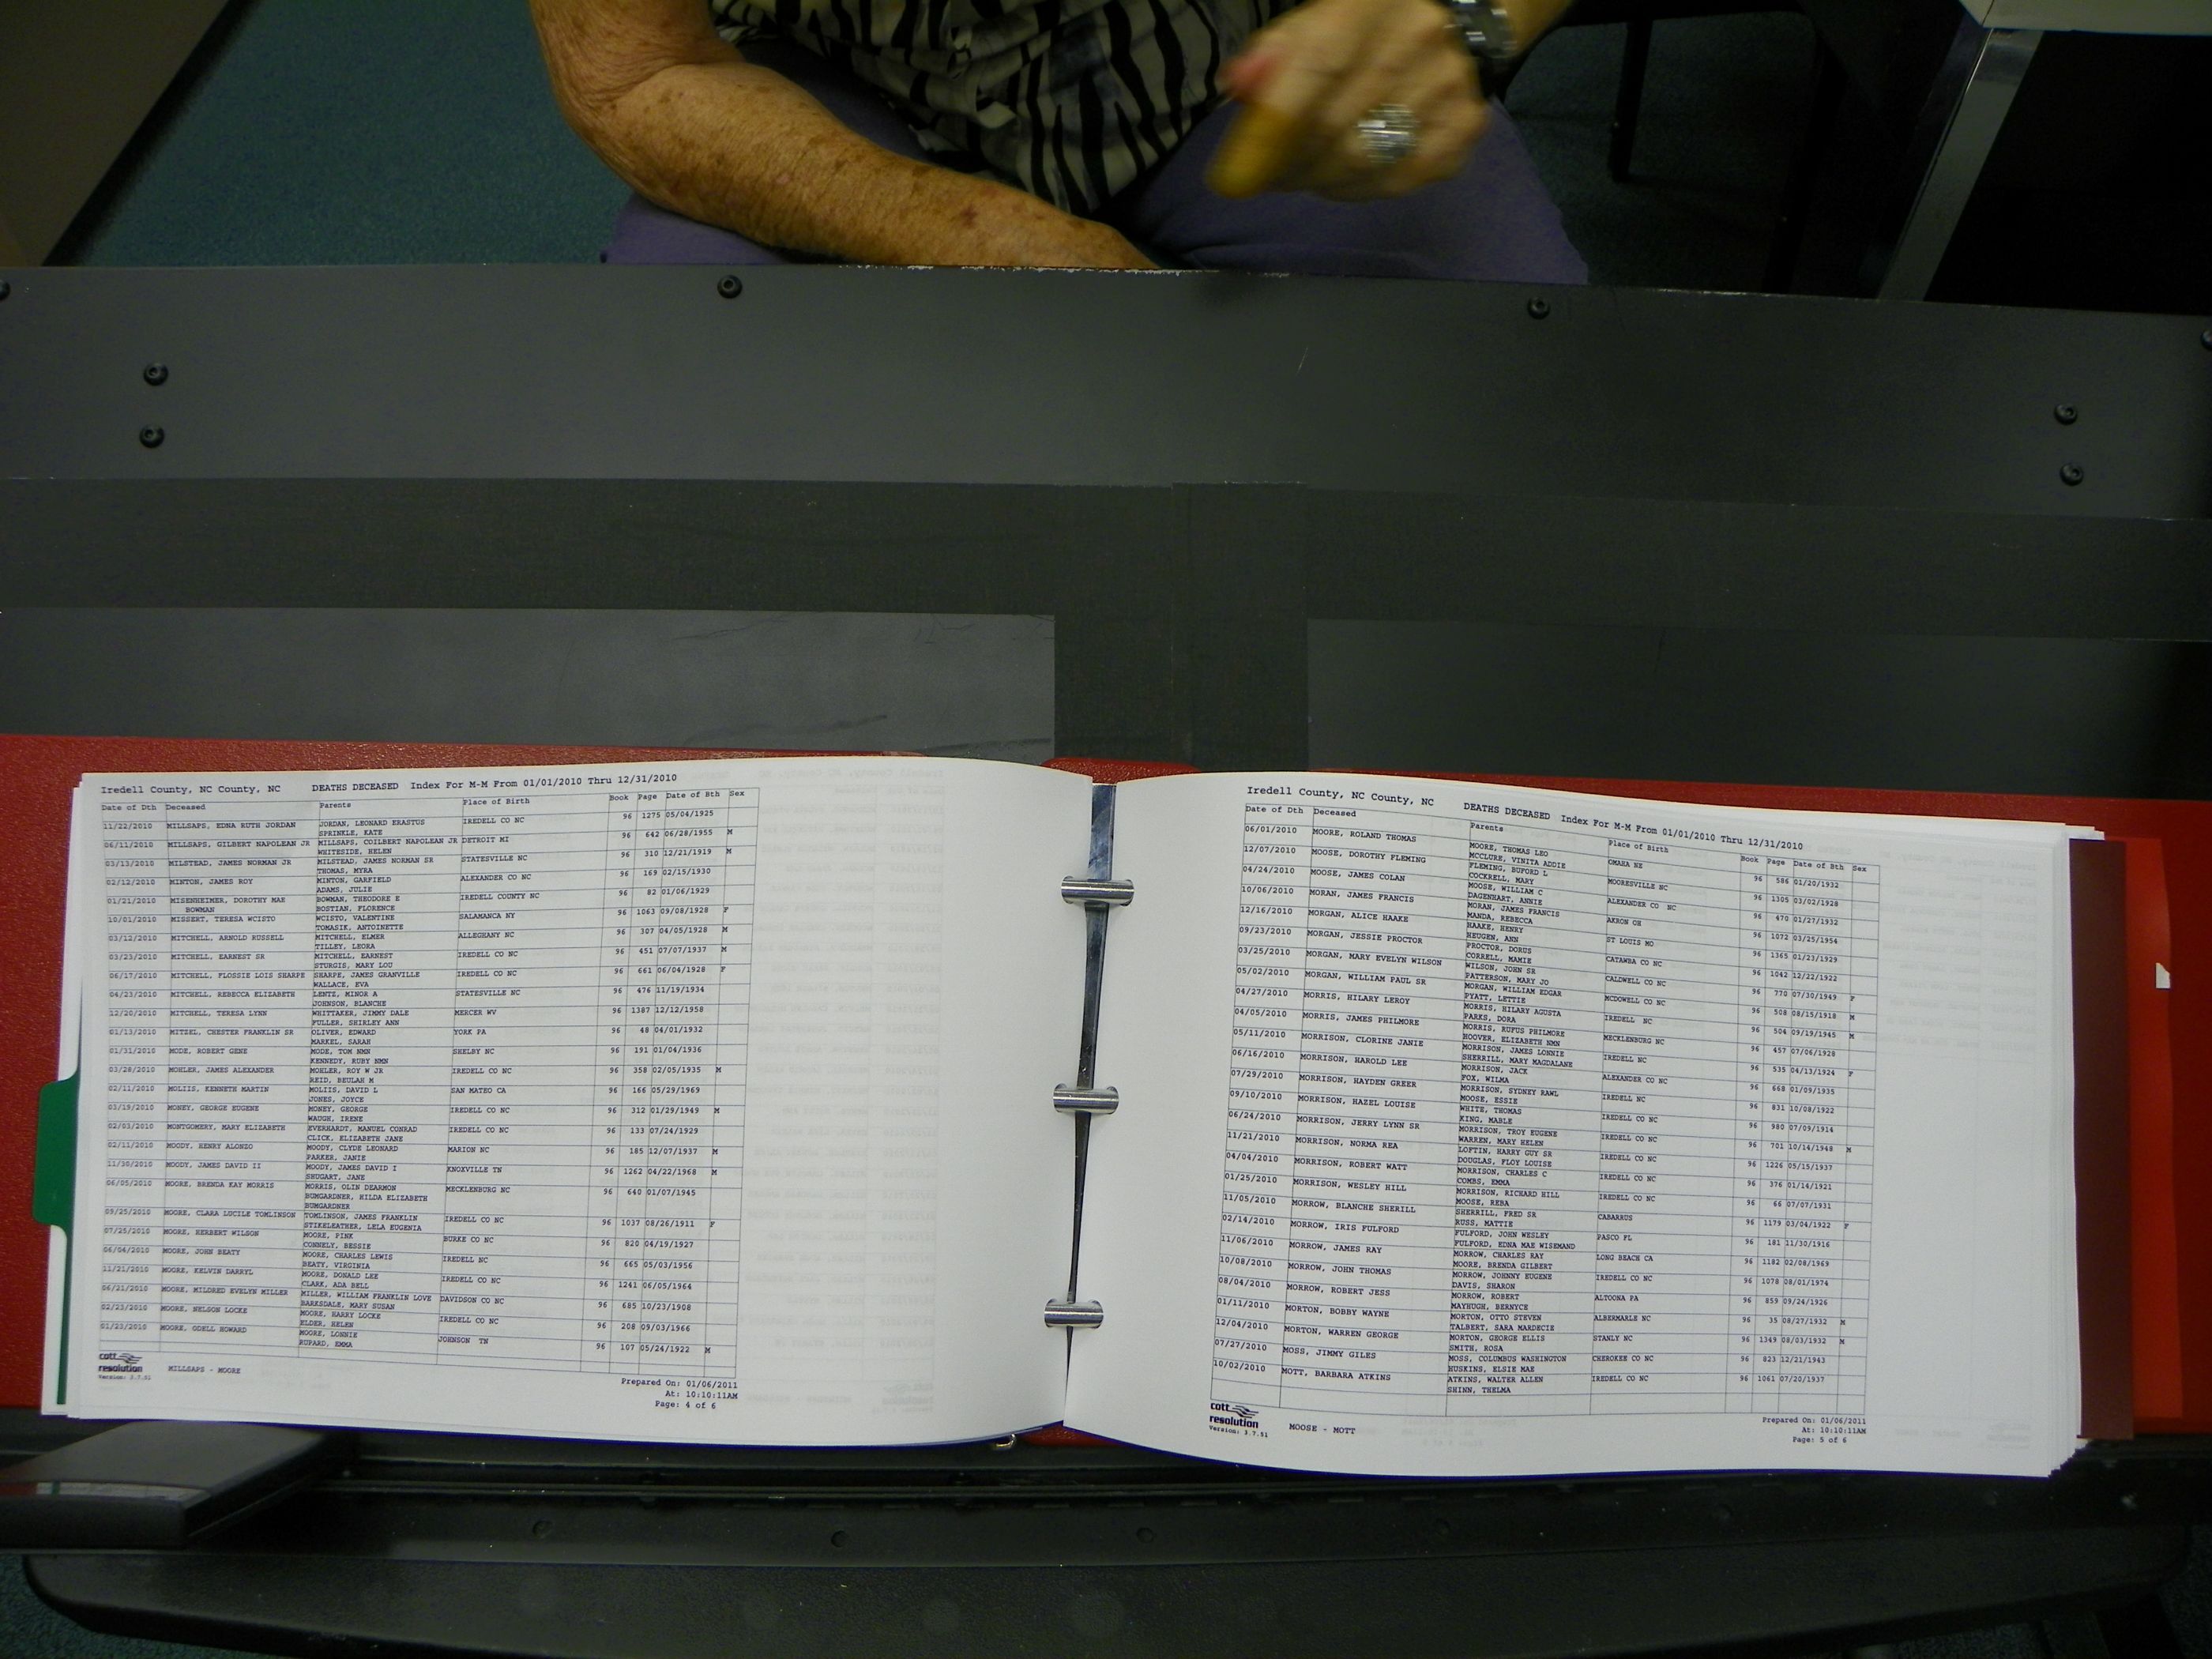 Iredell County, NC County, NC DEATHS DECEASED Index For M-M From 01/01/2010 Thru 12/31/2010
Date of Dth Deceased Parents Place of Birth Book Page Date of Bth Sex
11/22/2010 MILLSAPS, EDNA RUTH JORDAN JORDAN, LEONARD ERASTUS IREDELL CO NC 96 1275 05/04/1925
SPRINKLE, KATE
06/11/2010 MILLSAPS, GILBERT NAPOLEAN JR MILLSAPS, COILBERT NAPOLEAN JR DETROIT MI 96 642 06/28/1955 M
WHITESIDE, HELEN
03/13/2010 MILSTEAD, JAMES NORMAN JR MILSTEAD, JAMES NORMAN SR STATESVILLE NC 96 310 12/21/1919 M
THOMAS, MYRA
02/12/2010 MINTON, JAMES ROY MINTON, GARFIELD ALEXANDER CO NC 96 169 02/15/1930
ADAMS, JULIE
01/21/2010 MISENHEIMER, DOROTHY MAE BOWMAN, THEODORE E IREDELL COUNTY NC 96 82 01/06/1929
BOWMAN BOSTIAN, FLORENCE
10/01/2010 MISSERT, TERESA WCISTO WCISTO, VALENTINE SALAMANCA NY 96 1063 09/08/1928 F
TOMASIK, ANTOINETTE
03/12/2010 MITCHELL, ARNOLD RUSSELL MITCHELL, ELMER ALLEGHANY NC 96 307 04/05/1928 M
TILLEY, LEORA
03/23/2010 MITCHELL, EARNEST SR MITCHELL, EARNEST IREDELL CO NC 96 451 07/07/1937 M
STURGIS, MARY LOU
06/17/2010 MITCHELL, FLOSSIE LOIS SHARPE SHARPE, JAMES GRANVILLE IREDELL CO NC 96 661 06/04/1928 F
WALLACE, EVA
04/23/2010 MITCHELL, REBECCA ELIZABETH LENTZ, MINOR A STATESVILLE NC 96 476 11/19/1934
JOHNSON, BLANCHE
12/20/2010 MITCHELL, TERESA LYNN WHITTAKER, JIMMY DALE MERCER WV 96 1387 12/12/1958
FULLER, SHIRLEY ANN
01/13/2010 MITZEL, CHESTER FRANKLIN SR OLIVER, EDWARD YORK PA 96 48 04/01/1932
MARKEL, SARAH
01/31/2010 MODE, ROBERT GENE MODE, TOM NMN SHELBY NC 96 191 01/04/1936
KENNEDY, RUBY NMN
03/28/2010 MOHLER, JAMES ALEXANDER MOHLER, ROY W JR IREDELL CO NC 96 358 02/05/1935 M
REID, BEULAH M
02/11/2010 MOLIIS, KENNETH MARTIN MOLIIS, DAVID L SAN MATEO CA 96 166 05/29/1969
JONES, JOYCE
03/19/2010 MONEY, GEORGE EUGENE MONEY, GEORGE IREDELL CO NC 96 312 01/29/1949 M
WAUGH, IRENE
02/03/2010 MONTGOMERY, MARY ELIZABETH EVERHARDT, MANUEL CONRAD IREDELL CO NC 96 133 07/24/1929
CLICK, ELIZABETH JANE
02/11/2010 MOODY, HENRY ALONZO MOODY, CLYDE LEONARD MARION NC 96 185 12/07/1937 M
PARKER, JANIE
11/30/2010 MOODY, JAMES DAVID II MOODY, JAMES DAVID I KNOXVILLE TN 96 1262 04/22/1968 M
SHUGART, JANE
06/05/2010 MOORE, BRENDA KAY MORRIS MORRIS, OLIN DEARMON MECKLENBURG NC 96 640 01/07/1945
BUMGARDNER, HILDA ELIZABETH
BUMGARDNER
09/25/2010 MOORE, CLARA LUCILE TOMLINSON TOMLINSON, JAMES FRANKLIN IREDELL CO NC 96 1037 08/26/1911 F
STIKELEATHER, LELA EUGENIA
07/25/2010 MOORE, HERBERT WILSON MOORE, PINK BURKE CO NC 96 820 04/19/1927
CONNELY, BESSIE
06/04/2010 MOORE, JOHN BEATY MOORE, CHARLES LEWIS IREDELL NC 96 665 05/03/1956
BEATY, VIRGINIA
11/21/2010 MOORE, KELVIN DARRYL MOORE, DONALD LEE IREDELL CO NC 96 1241 06/05/1964
CLARK, ADA BELL
06/21/2010 MOORE, MILDRED EVELYN MILLER MILLER, WILLIAM FRANKLIN LOVE DAVIDSON CO NC 96 685 10/23/1908
BARKSDALE, MARY SUSAN
02/23/2010 MOORE, NELSON LOCKE MOORE, HARRY LOCKE IREDELL CO NC 96 208 09/03/1966
ELDER, HELEN
01/23/2010 MOORE, ODELL HOWARD MOORE, LONNIE JOHNSON TN 96 107 05/24/1922 M
RUPARD, EMMA
cott
resolution MILLSAPS - MOORE
Version: 3.7.51
Prepared On: 01/06/2011
At: 10:10:11AM
Page: 4 of 6
Iredell County, NC County, NC DEATHS DECEASED Index For M-M From 01/01/2010 Thru 12/31/2010
Date of Dth Deceased Parents Place of Birth Book Page Date of Bth Sex
06/01/2010 MOORE, ROLAND THOMAS MOORE, THOMAS LEO OMAHA NE 96 586 01/20/1932
MCCLURE, VINITA ADDIE
12/07/2010 MOOSE, DOROTHY FLEMING FLEMING, BUFORD L MOORESVILLE NC 96 1305 03/02/1928
COCKRELL, MARY
04/24/2010 MOOSE, JAMES COLAN MOOSE, WILLIAM C ALEXANDER CO NC 96 470 01/27/1932
DAGENHART, ANNIE
10/06/2010 MORAN, JAMES FRANCIS MORAN, JAMES FRANCIS AKRON OH 96 1072 03/25/1954
MANDA, REBECCA
12/16/2010 MORGAN, ALICE HAAKE HAAKE, HENRY ST LOUIS MO 96 1365 01/23/1929
HEUGEN, ANN
09/23/2010 MORGAN, JESSIE PROCTOR PROCTOR, DORUS CATAWBA CO NC 96 1042 12/22/1922
CORRELL, MAMIE
03/25/2010 MORGAN, MARY EVELYN WILSON WILSON, JOHN SR CALDWELL CO NC 96 770 07/30/1949 F
PATTERSON, MARY JO
05/02/2010 MORGAN, WILLIAM PAUL SR MORGAN, WILLIAM EDGAR MCDOWELL CO NC 96 508 08/15/1918 M
PYATT, LETTIE
04/27/2010 MORRIS, HILARY LEROY MORRIS, HILARY AGUSTA IREDELL NC 96 504 09/19/1945 M
PARKS, DORA
04/05/2010 MORRIS, JAMES PHILMORE MORRIS, RUFUS PHILMORE MECKLENBURG NC 96 457 07/06/1928
HOOVER, ELIZABETH NMN
05/11/2010 MORRISON, CLORINE JANIE MORRISON, JAMES LONNIE IREDELL NC 96 535 04/13/1924 F
SHERRILL, MARY MAGDALANE
06/16/2010 MORRISON, HAROLD LEE MORRISON, JACK ALEXANDER CO NC 96 668 01/09/1935
FOX, WILMA
07/29/2010 MORRISON, HAYDEN GREER MORRISON, SYDNEY RAWL IREDELL NC 96 831 10/08/1922
MOOSE, ESSIE
09/10/2010 MORRISON, HAZEL LOUISE WHITE, THOMAS IREDELL CO NC 96 980 07/09/1914
KING, MABLE
06/24/2010 MORRISON, JERRY LYNN SR MORRISON, TROY EUGENE IREDELL CO NC 96 701 10/14/1948 M
WARREN, MARY HELEN
11/21/2010 MORRISON, NORMA REA LOFTIN, HARRY GUY SR IREDELL CO NC 96 1226 05/15/1937
DOUGLAS, FLOY LOUISE
04/04/2010 MORRISON, ROBERT WATT MORRISON, CHARLES C IREDELL CO NC 96 376 01/14/1921
COMBS, EMMA
01/25/2010 MORRISON, WESLEY HILL MORRISON, RICHARD HILL IREDELL CO NC 96 66 07/07/1931
MOOSE, REBA
11/05/2010 MORROW, BLANCHE SHERILL SHERRILL, FRED SR CABARRUS 96 1179 03/04/1922 F
RUSS, MATTIE
02/14/2010 MORROW, IRIS FULFORD FULFORD, JOHN WESLEY PASCO FL 96 181 11/30/1916
FULFORD, EDNA MAE WISEMAND
11/06/2010 MORROW, JAMES RAY MORROW, CHARLES RAY LONG BEACH CA 96 1182 02/08/1969
MOORE, BRENDA GILBERT
10/08/2010 MORROW, JOHN THOMAS MORROW, JOHNNY EUGENE IREDELL CO NC 96 1078 08/01/1974
DAVIS, SHARON
08/04/2010 MORROW, ROBERT JESS MORROW, ROBERT ALTOONA PA 96 859 09/24/1926
MAYHUGH, BERNYCE
01/11/2010 MORTON, BOBBY WAYNE MORTON, OTTO STEVEN ALBERMARLE NC 96 35 08/27/1932 M
TALBERT, SARA MARDECIE
12/04/2010 MORTON, WARREN GEORGE MORTON, GEORGE ELLIS STANLY NC 96 1349 08/03/1932 M
SMITH, ROSA
07/27/2010 MOSS, JIMMY GILES MOSS, COLUMBUS WASHINGTON CHEROKEE CO NC 96 823 12/21/1943
HUSKINS, ELSIE MAE
10/02/2010 MOTT, BARBARA ATKINS ATKINS, WALTER ALLEN IREDELL CO NC 96 1061 07/20/1937
SHINN, THELMA
cott
resolution MOOSE - MOTT
Version: 3.7.51
Prepared On: 01/06/2011
At: 10:10:11AM
Page: 5 of 6